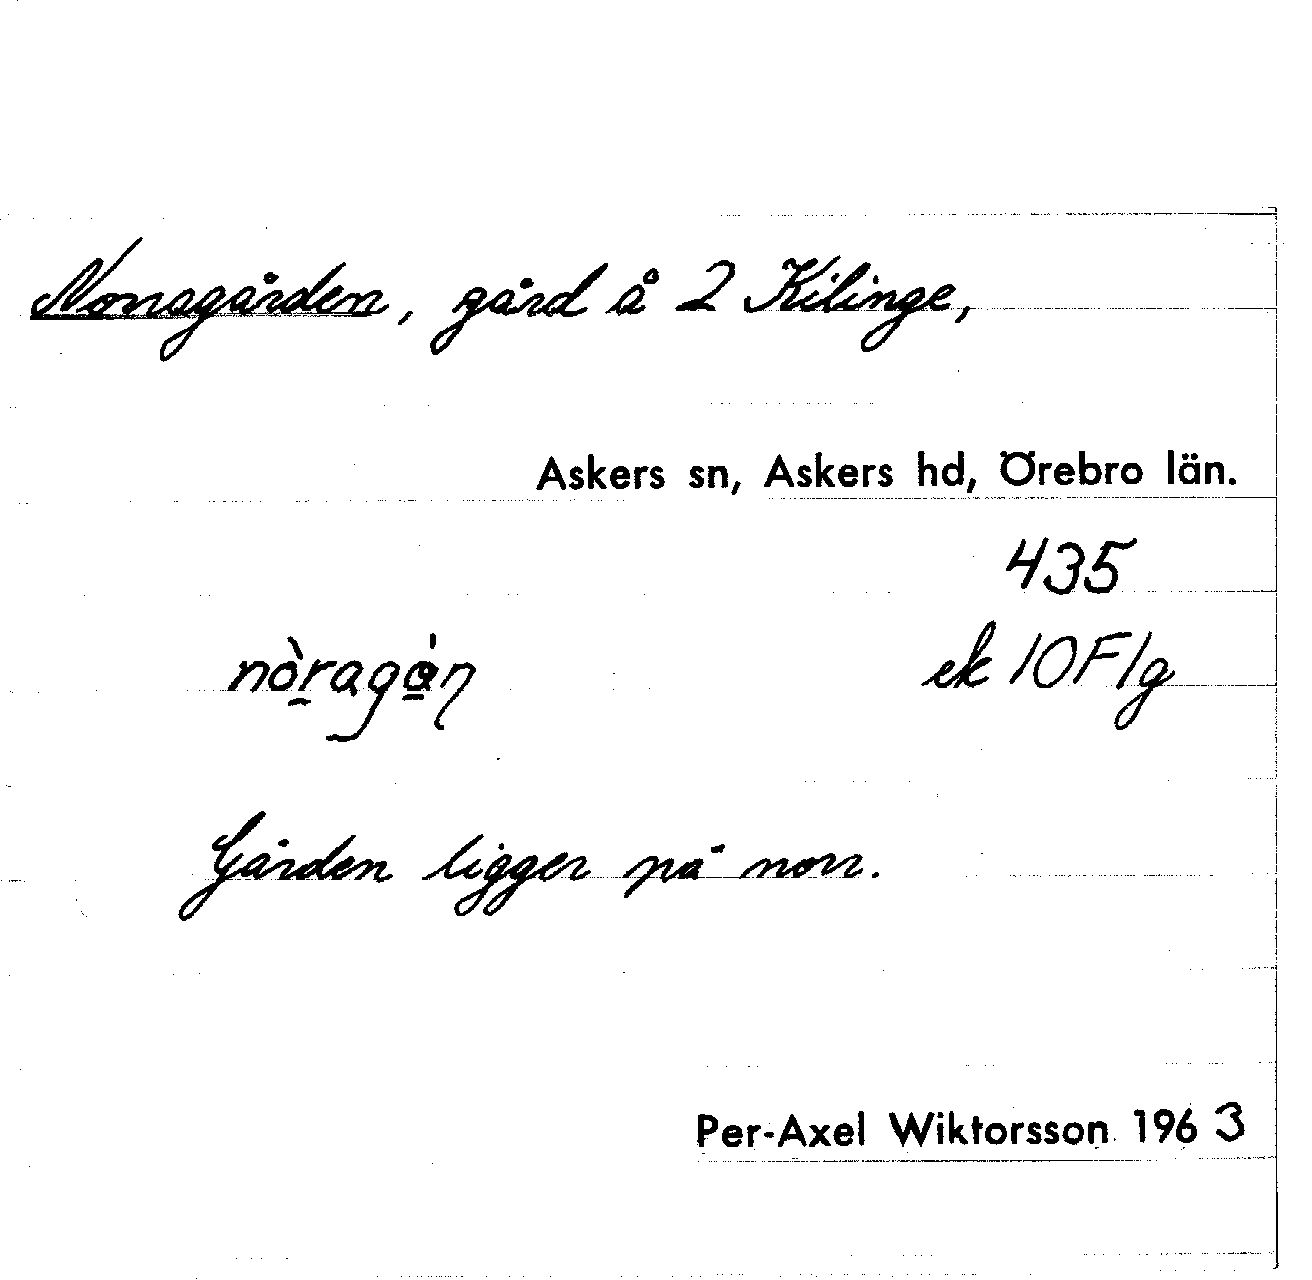 Norragården, gård å 2 Kilinge,
Askers sn, Askers hd, Örebro län.
435
nòragá̊ņ ek 10F1g
Gården ligger på norr.
Per-Axel Wiktorsson 1963